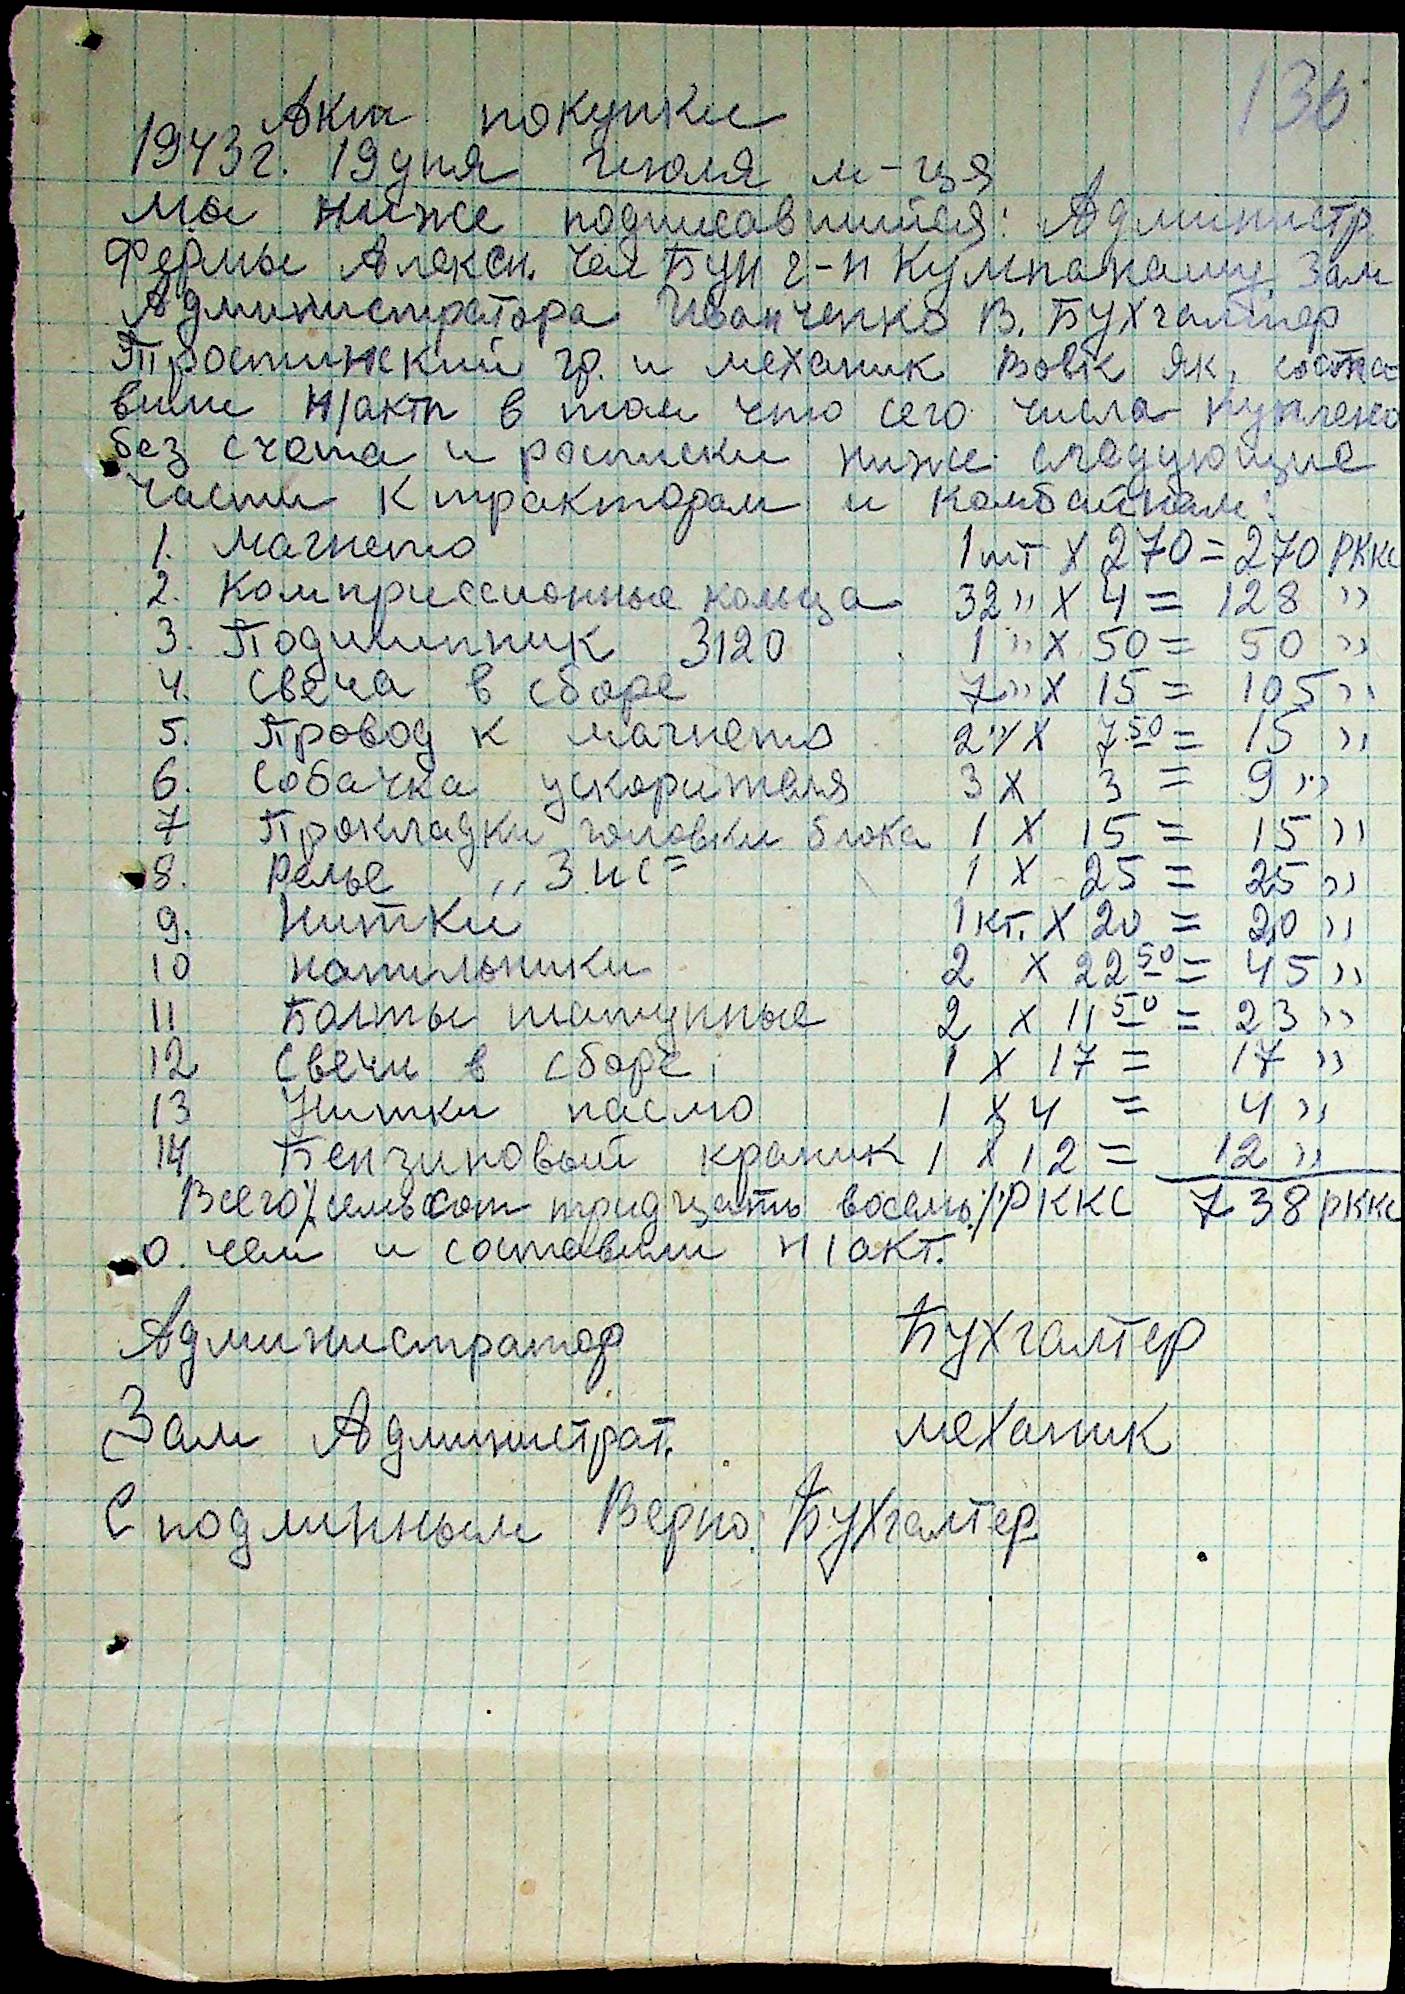 136
Акт покупки
1943 г. 19 дня июля м-ця
Мы ниже подписавшийся: Администр.
Фермы Алексн. Чел Бун г-н Кумпанашу, Зам
Администратора Иванченко В. Бухгалтер
Тростинский гр. и механик Вовк Як, соста-
вили н/акт в том что сего числа куплено
без счета и росписки ниже следующие
части к тракторам и комбайнам:
1. Магнето 1 шт X 270 = 270 РККС
2. Компрессионные кольца 32 " X 4 = 128 "
3. Подшипник 3120 1 " X 50 = 50 "
4. Свеча в сборе 7 " X 15 = 105 "
5. Провод к магнето 2 " X 7 50 = 15 "
6. Собачка ускорителя 3 X 3 = 9 "
7 Прокладки головки блока 1 X 15 = 15 "
8. Релье "Зис" 1 X 25 = 25 "
9. Нитки 1 кг. X 20 = 20 "
10 напильники 2 X 22 50 = 45 "
11 Болты шатунные 2 X 11 50 = 23 "
12 Свечи в сборе 1 X 17 = 17 "
13 Нитки пасмо 1 X 4 = 4 "
14 Бензиновый краник 1 X 12 = 12 "
Всего /семьсот тридцать восемь/ РККС 738 РККС
о чем и составили н/акт.
Администратор Бухгалтер
Зам Администрат. механик
С подлинным Верно: Бухгалтер